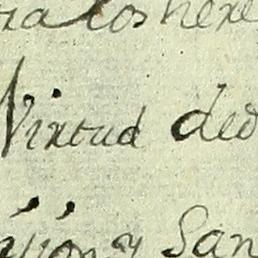 ra los here
Virtud ded
ición y San